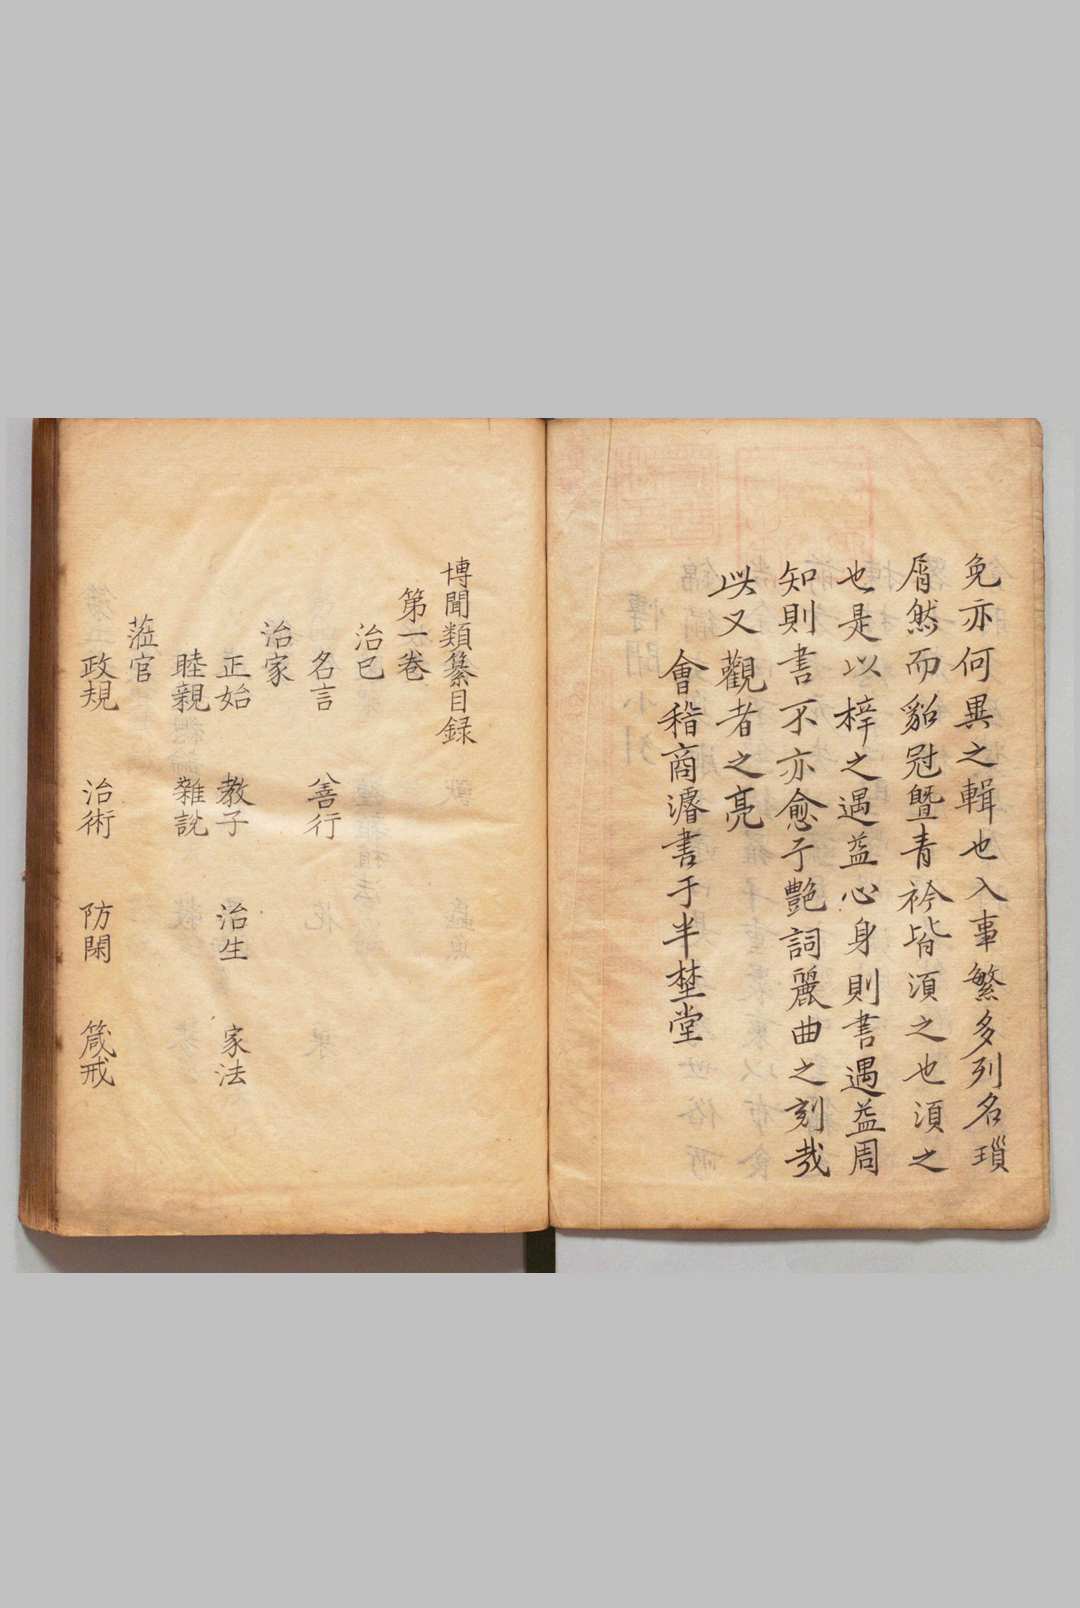 免亦何異之輯也入事繁多列名瑣
屑然而貂冠暨青衿皆湏之也湏之
也是以梓之遇益心身則書遇益周
知則書不亦愈于艷詞麗曲之刻哉
此又觀者之亮
會稽商濬書于半埜堂
博聞類纂目録
第一卷
治已
名言 善行
治家
正始 教子 治生 家法
睦親 雜說
蒞官
政規 治術 防閑 箴戒